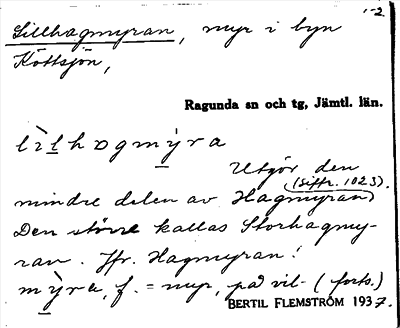 1-2
Lillhagmyran, myr i byn
Köttsjön,
Ragunda sn och tg, Jämtl. län.
lìlhɒgmy̆ra
Utgör den
(Siffr. 1023).
mindre delen av Hagmyran
Den större kallas Storhagmy-
ran. Jfr. Hagmyran!
my̆ra, f. = myr, på vil- (forts.)
BERTIL FLEMSTRÖM 1937.